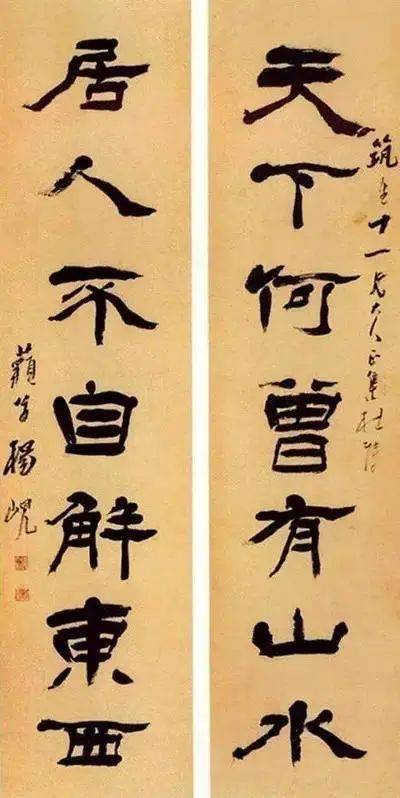 天下何曾有山水
筑生十一兄大人正集杜陵
居人不自解東西
藐翁楊峴